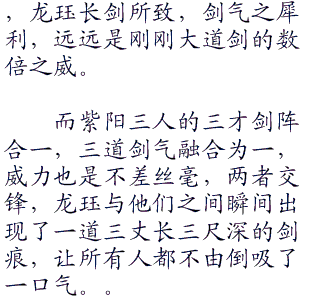 ，龙珏长剑所致，剑气之犀
利，远远是刚刚大道剑的数
倍之威。
而紫阳三人的三才剑阵
合一，三道剑气融合为一，
威力也是不差丝毫，两者交
锋，龙珏与他们之间瞬间出
现了一道三丈长三尺深的剑
痕，让所有人都不由倒吸了
一口气。。